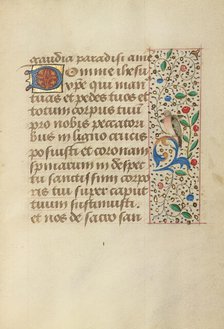 gaudia paradisi ame
Omine ihesu
xpe qui man
tuas et pedes tuos et
totum corpus tuu
pro nobis peccator
bus in ligno crucis
posuisti et coronam
spinarum in despec
tu sanctissimi corpo
ris tui super caput
tuum sustinuisti.
et nos de sacro san